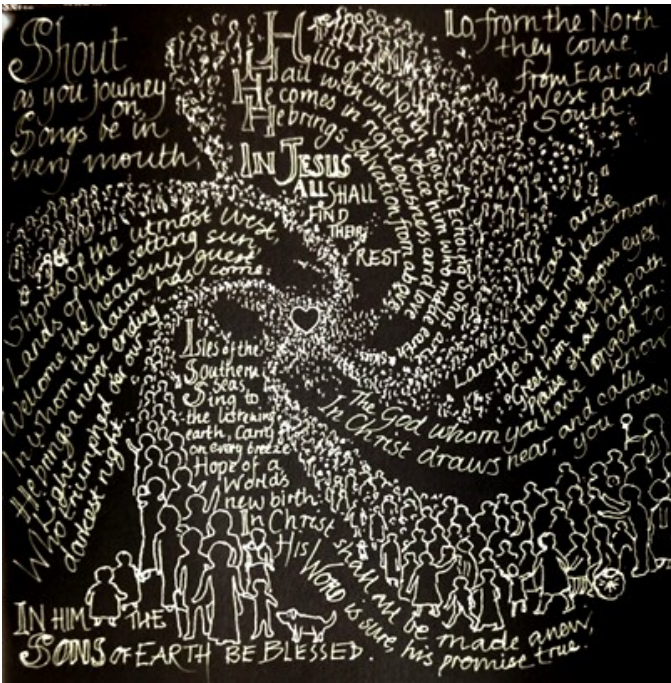 Shout
as you journey
on
Songs be in
every mouth,
Lo, from the North
they come
from East and
West and
South.
Hills of the North, rejoice, Echoing songs arise
Hail with united voice him who made earth and skies
He comes in righteousness and love
He brings salvation from above.
IN JESUS
ALL SHALL
FIND
THEIR
REST
Shores of the utmost West,
Lands of the setting sun,
Welcome the heavenly guest
In whom the dawn has come.
He brings a never ending
Light
Who triumphed o'er our
darkest night
Lands of the East, arise
He is your brightest morn
Greet him with joyous eyes,
Praise shall his path adorn
The God whom you have longed to know
In Christ draws near, and calls you now.
Isles of the
Southern
Seas,
Sing to
the listening
earth, Carry
on every breeze
Hope of a
World's
new birth.
In Christ shall all be made anew,
His WORD is sure, his promise true.
IN HIM THE
SONS OF EARTH BE BLESSED.